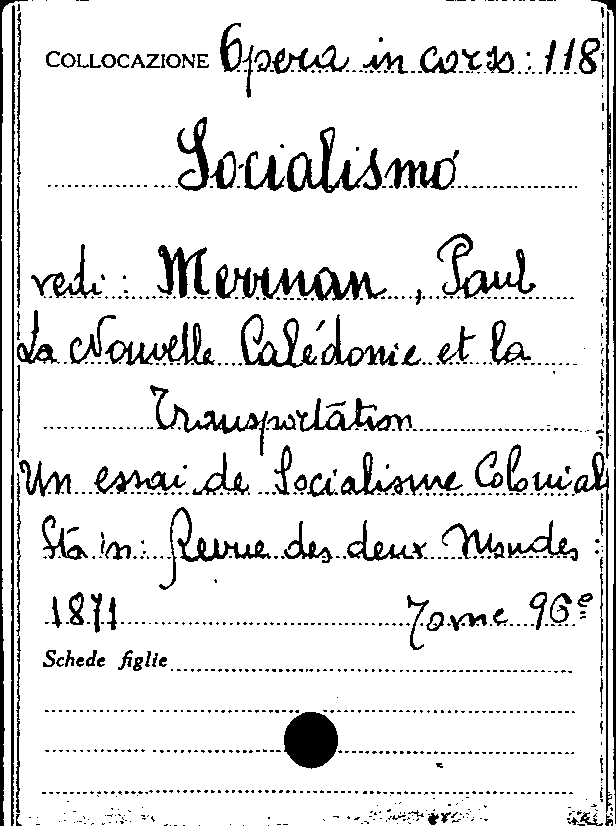 COLLOCAZIONE Opera in corso: 118
Socialismo
vedi: Merruau, Paul
La Nouvelle Calédonie et la
Transportation
Un essai de Socialisme Colonial
Sta in: Revue des deux Mondes:
1871 Tome 96º
Schede figlie